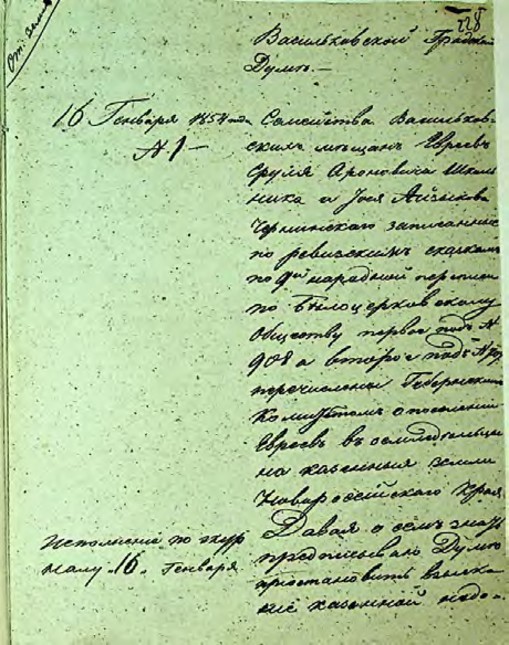 228
Васильковской Градской
Думѣ.—
16 Генваря 1854 года
№ 1 —
Семейства Васильков-
скихъ мѣщанъ Евреевъ
Сруля Ароновича Школь
ника и Іося Айзыкова
Чернинскаго записанные
по ревизскимъ сказкамъ
по 9й народной переписи
по Бѣлоцерковскому
Обществу первое подъ №
908 а второе подъ №
перечислены Губернскимъ
Комитетомъ о поселении
Евреевъ въ земледѣльцы
на казенныя земли
Новороссійскаго Края.
Давая о семъ знать
предписываю Думѣ
приостановить взыска
ние казенной недо-
Исполнено по жур
налу 16. Генваря